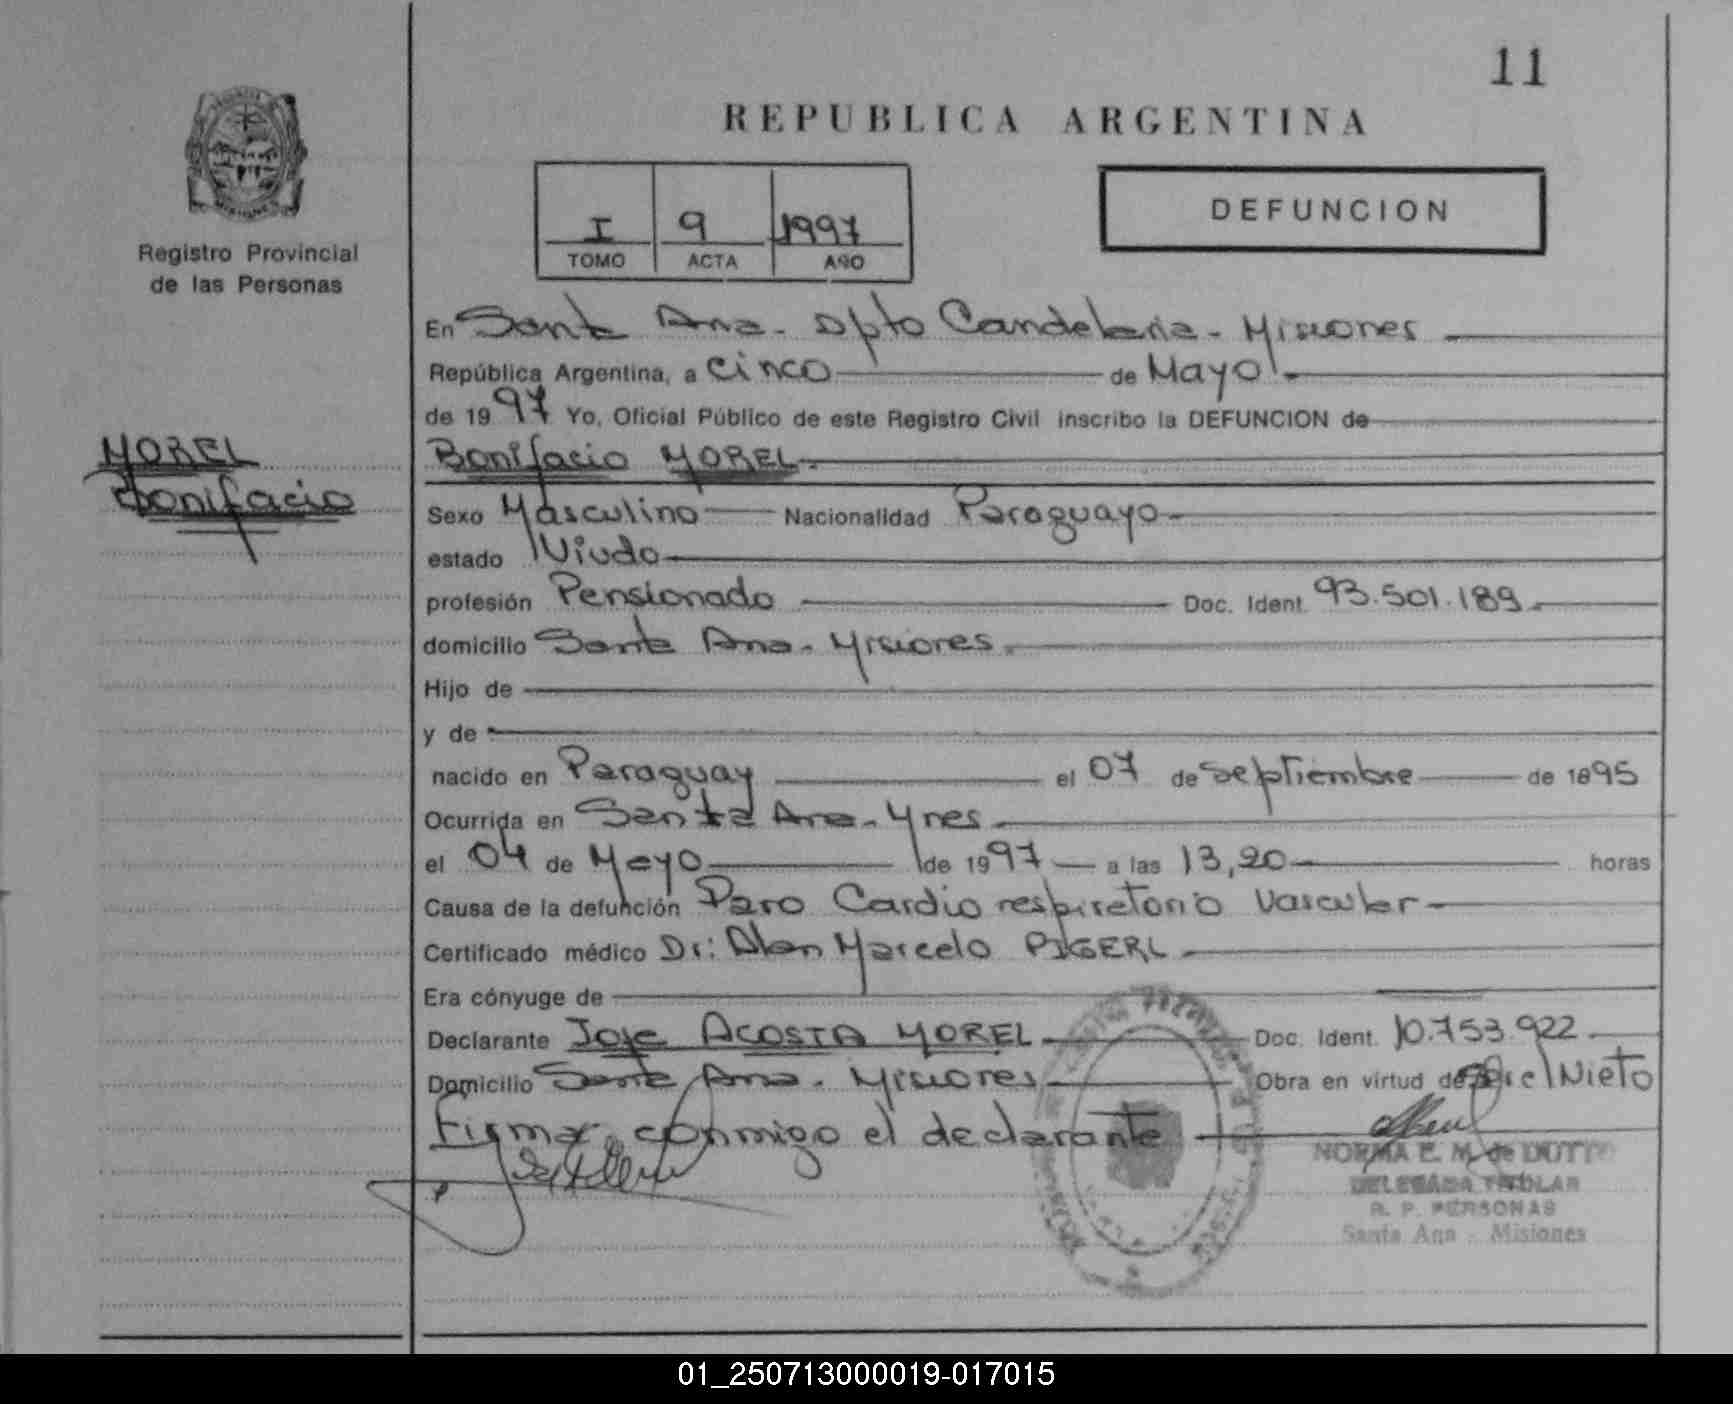 11
REPUBLICA ARGENTINA
I 9 1997
TOMO ACTA AÑO
DEFUNCION
Registro Provincial
de las Personas
MOREL
Bonifacio
En Santa Ana - Dpto Candelaria - Misiones
República Argentina, a Cinco de Mayo
de 1997 Yo, Oficial Público de este Registro Civil inscribo la DEFUNCION de
Bonifacio MOREL
Sexo Masculino Nacionalidad Paraguayo
estado Viudo
profesión Pensionado Doc. Ident. 93.501.189
domicilio Santa Ana - Misiones
Hijo de
y de
nacido en Paraguay el 07 de Septiembre de 1895
Ocurrida en Santa Ana - Mnes
el 04 de Mayo de 1997 a las 13,20 horas
Causa de la defunción Paro Cardio respiratorio Vascular
Certificado médico Dr: Alan Marcelo PIGERL
Era cónyuge de
Declarante Jose ACOSTA MOREL Doc. Ident. 10.753.922
Domicilio Santa Ana - Misiones Obra en virtud de Nieto
Firma conmigo el declarante
NORMA E. M. de DUTTO
DELEGADA TITULAR
R. P. PERSONAS
Santa Ana - Misiones
01_250713000019-017015